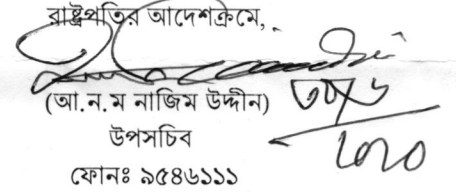 রাষ্ট্রপতির আদেশক্রমে,
(আ.ন.ম নাজিম উদ্দীন)
উপসচিব
ফোনঃ ৯৫৪৬১১১